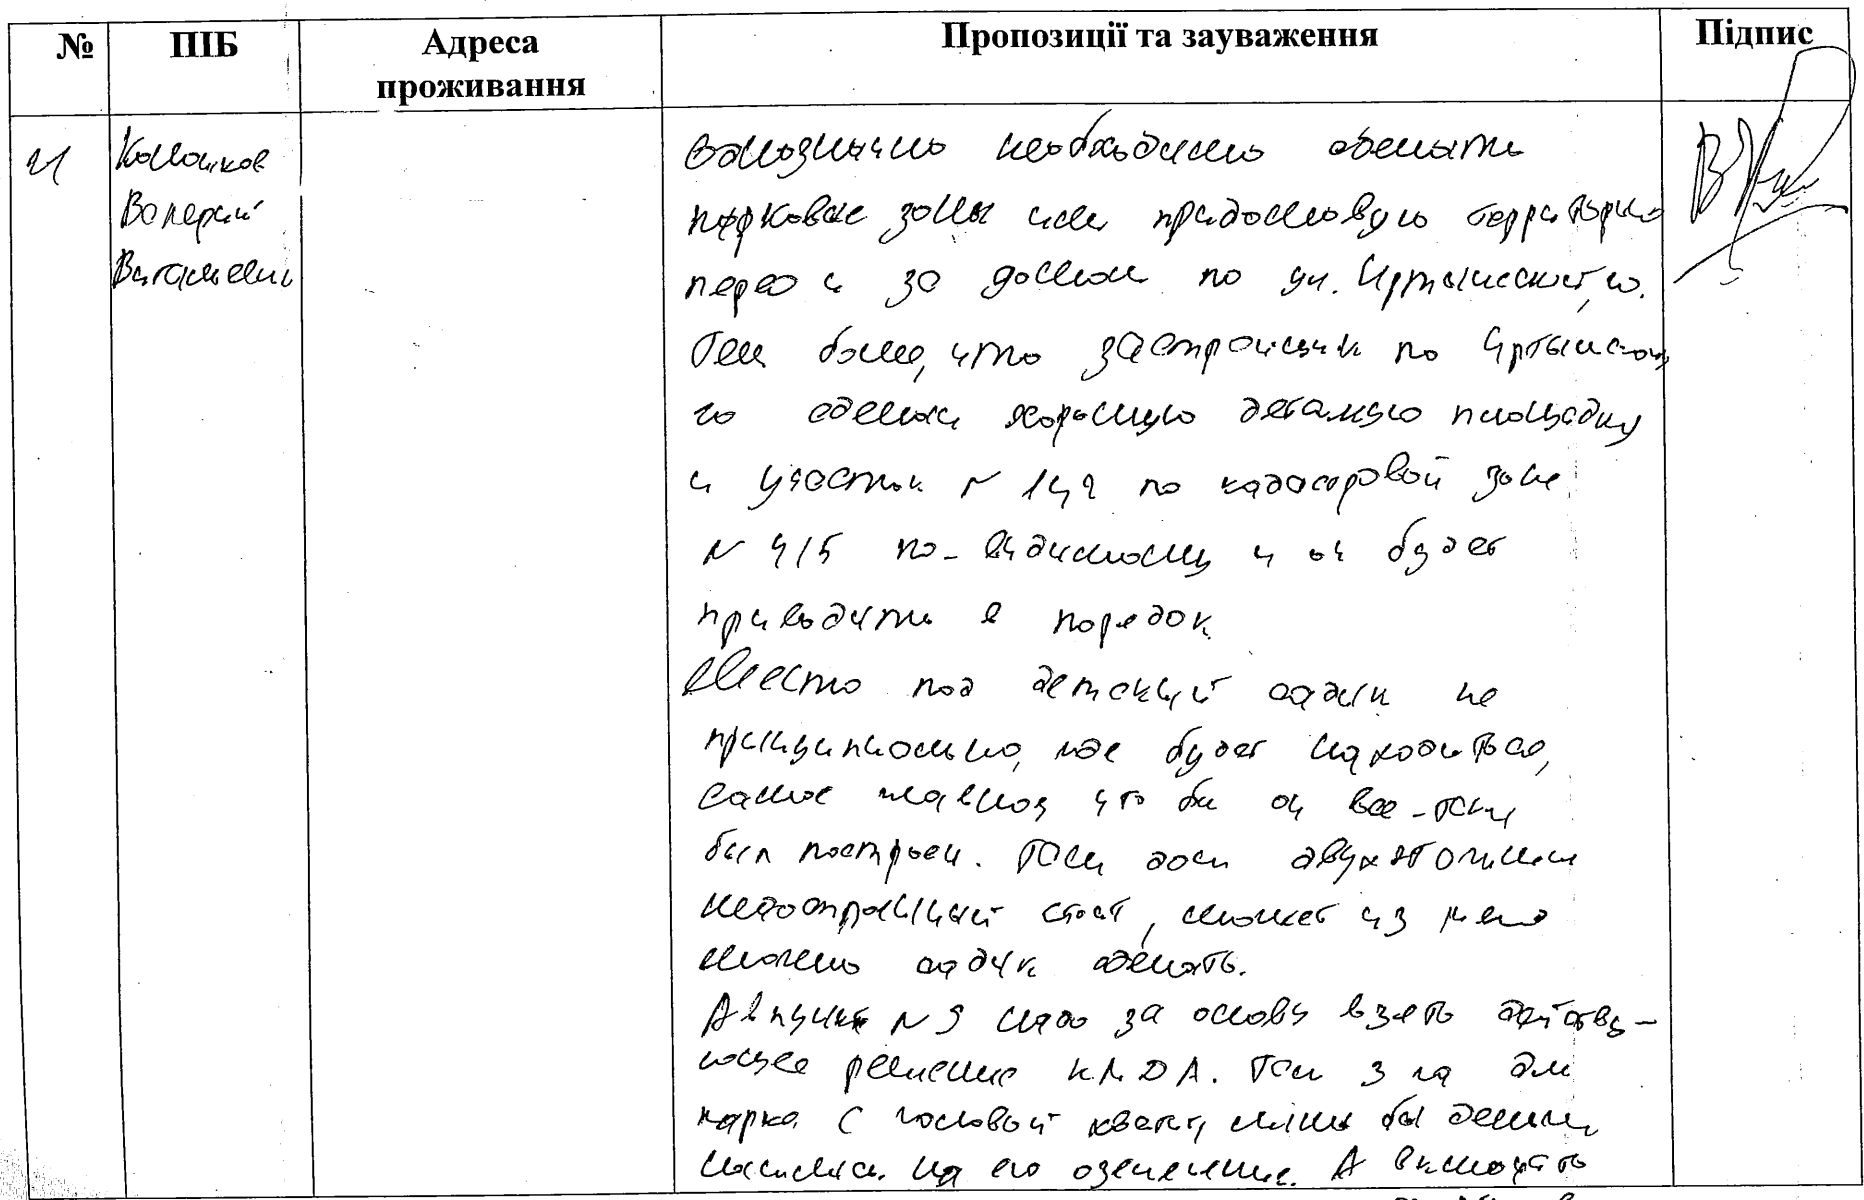 № ПІБ Адреса проживання Пропозиції та зауваження Підпис
Валерий
Витальевич
Однозначно необходимо
парковые зоны или придомовую территорию
перед и за домом по ул. Иртышской, 10.
Тем более, что застройщик по Иртышской,
10 сделал хорошую детскую площадку
и участок N 142 по кадастровой зоне
N 415 по-видимому и он будет
приводить в порядок.
Место под детский садик не
принципиально, где будет находиться,
самое главное что бы он все-таки
был построен. Там дом двухэтажный
недостроенный стоит, может из него
можно садик сделать.
А в пункте N 9 надо за основу взять действу-
ющее решение КМДА. Там 3 га для
парка
на его озеленение. А включать